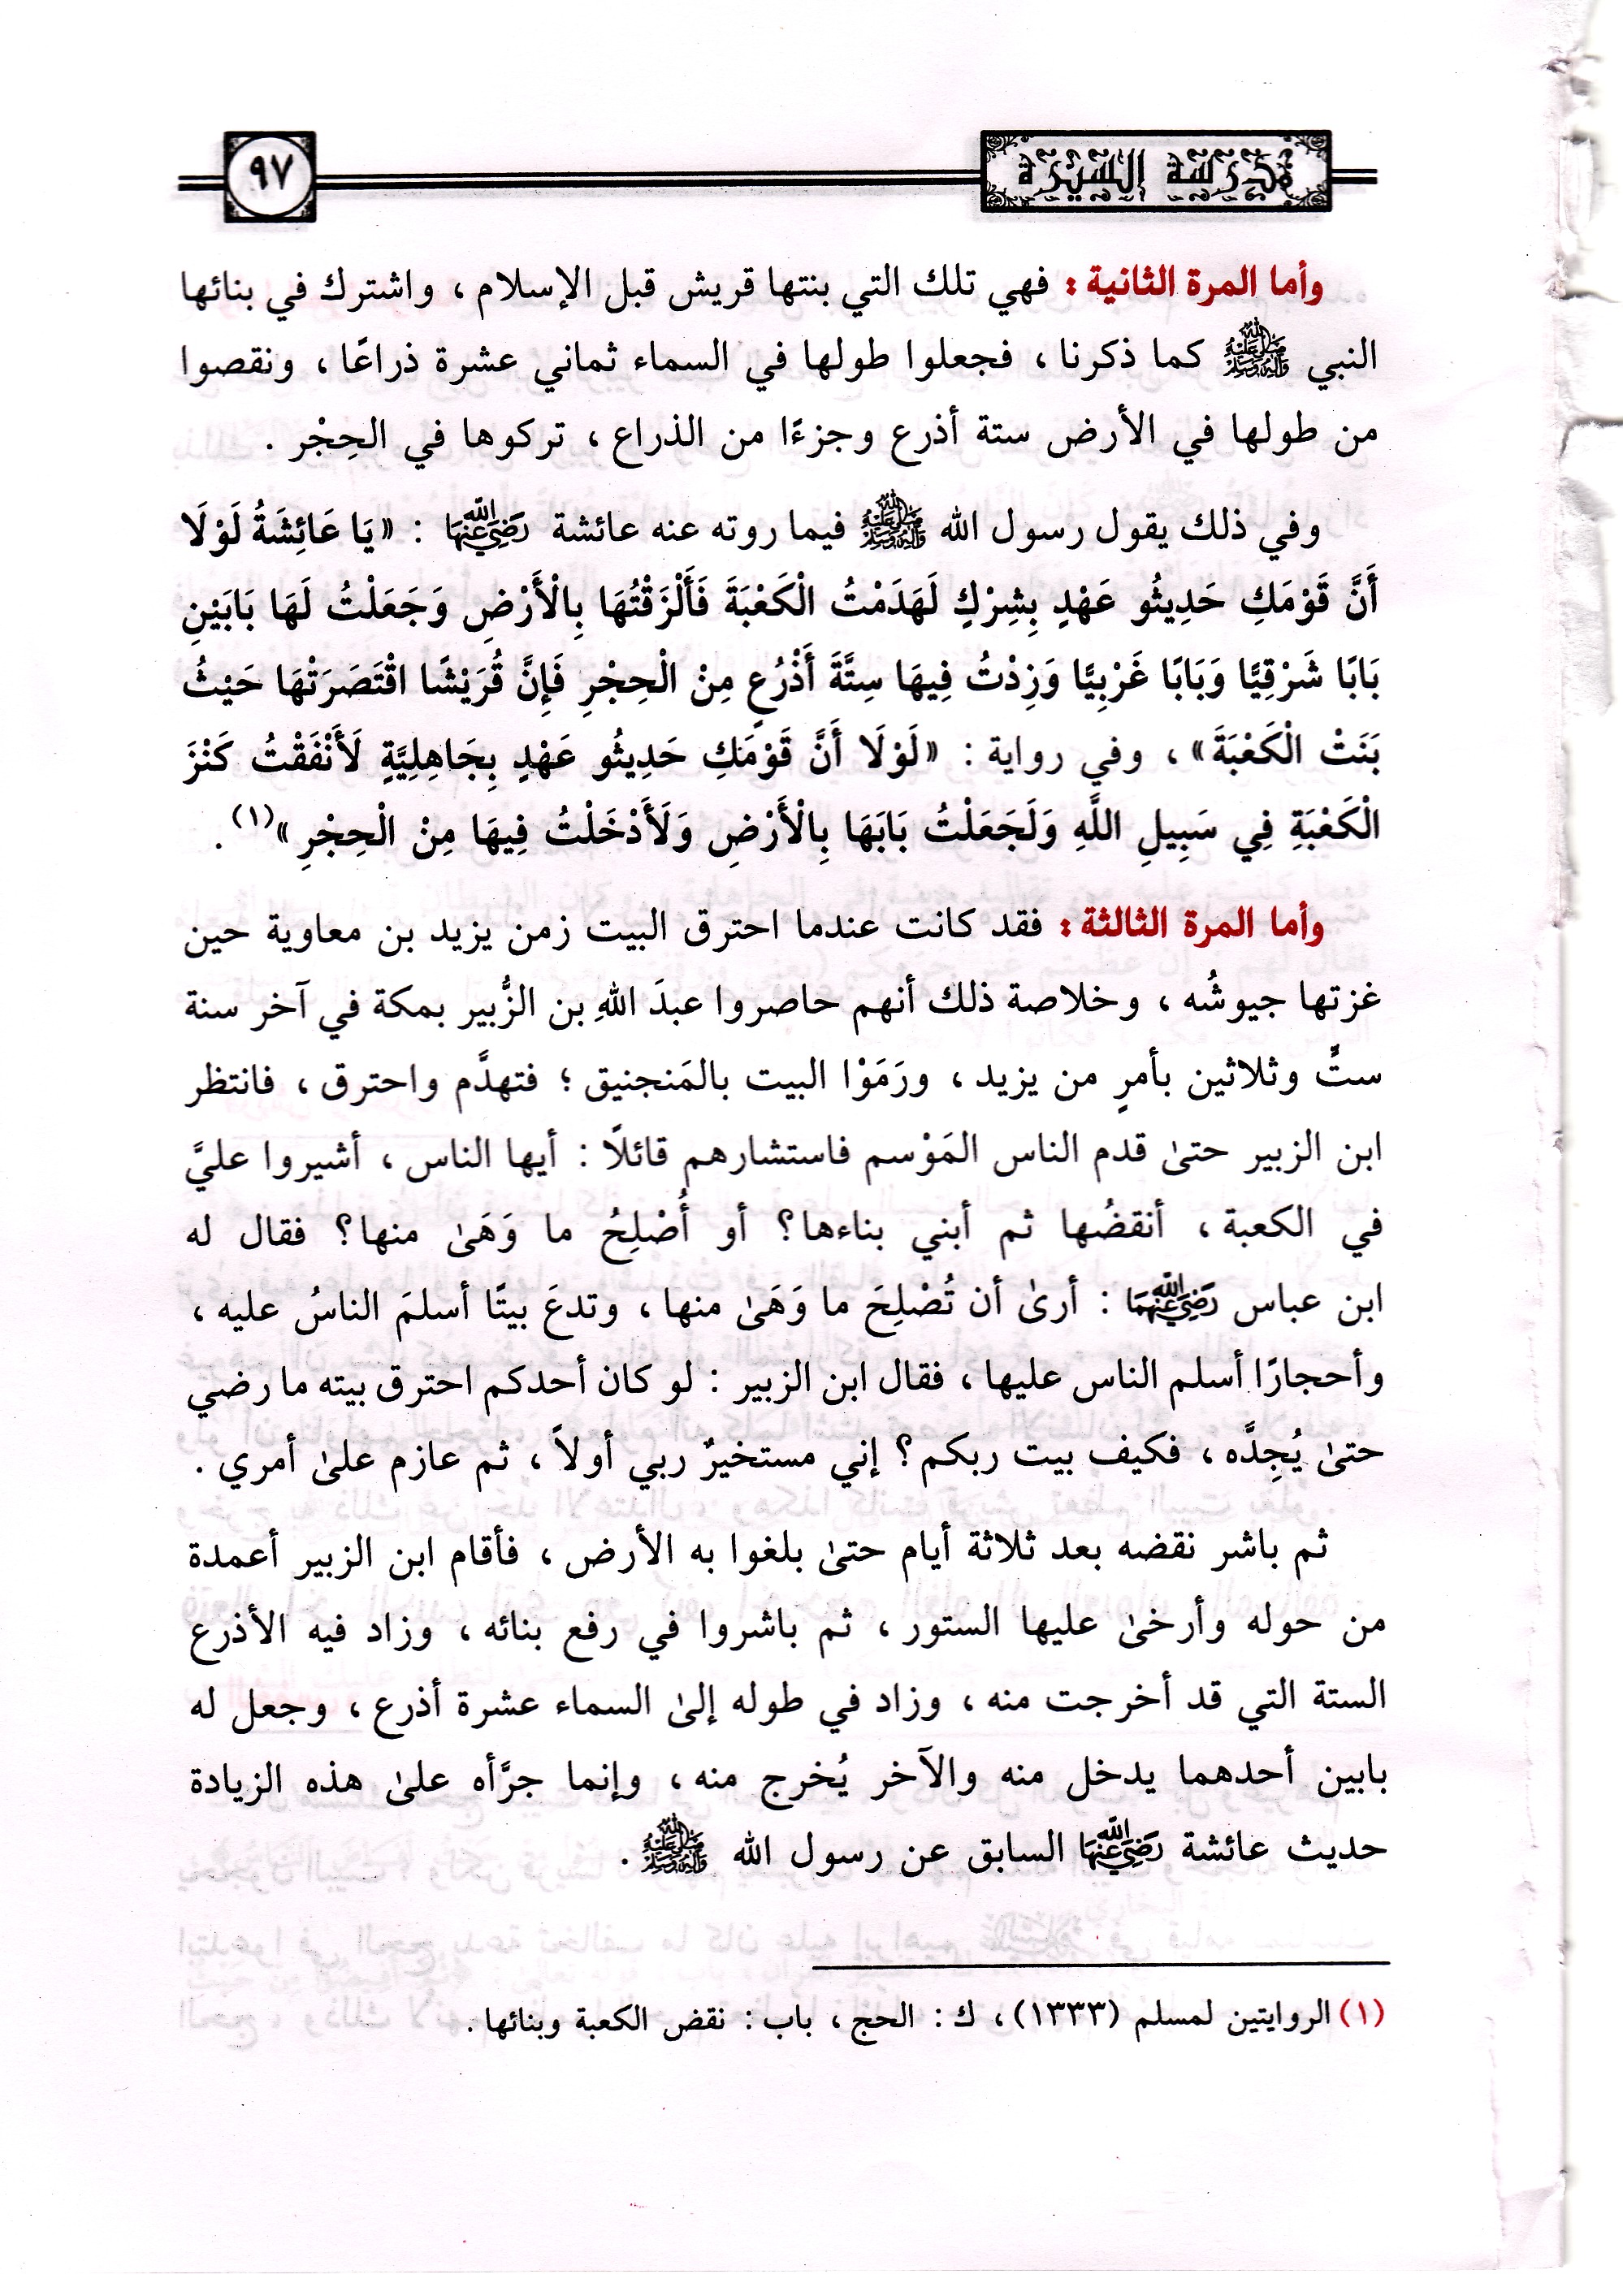 مدرسة السيرة
٩٧
وأما المرة الثانية : فهي تلك التي بنتها قريش قبل الإسلام ، واشترك في بنائها
النبي ﷺ كما ذكرنا ، فجعلوا طولها في السماء ثماني عشرة ذراعًا ، ونقصوا
من طولها في الأرض ستة أذرع وجزءًا من الذراع ، تركوها في الحِجْر .
وفي ذلك يقول رسول الله ﷺ فيما روته عنه عائشة رَضِيَ اللَّهُ عَنْهَا : «يَا عَائِشَةُ لَوْلَا
أَنَّ قَوْمَكِ حَدِيثُو عَهْدٍ بِشِرْكٍ لَهَدَمْتُ الْكَعْبَةَ فَأَلْزَقْتُهَا بِالْأَرْضِ وَجَعَلْتُ لَهَا بَابَيْنِ
بَابًا شَرْقِيًّا وَبَابًا غَرْبِيًّا وَزِدْتُ فِيهَا سِتَّةَ أَذْرُعٍ مِنْ الْحِجْرِ فَإِنَّ قُرَيْشًا اقْتَصَرَتْهَا حَيْثُ
بَنَتْ الْكَعْبَةَ» ، وفي رواية : «لَوْلَا أَنَّ قَوْمَكِ حَدِيثُو عَهْدٍ بِجَاهِلِيَّةٍ لَأَنْفَقْتُ كَنْزَ
الْكَعْبَةِ فِي سَبِيلِ اللَّهِ وَلَجَعَلْتُ بَابَهَا بِالْأَرْضِ وَلَأَدْخَلْتُ فِيهَا مِنْ الْحِجْرِ »(١) .
وأما المرة الثالثة : فقد كانت عندما احترق البيت زمن يزيد بن معاوية حين
غزتها جيوشُه ، وخلاصة ذلك أنهم حاصروا عبدَ اللهِ بن الزُّبير بمكة في آخر سنة
ستٍّ وثلاثين بأمرٍ من يزيد ، ورَمَوْا البيت بالمَنجنيق ؛ فتهدَّم واحترق ، فانتظر
ابن الزبير حتىٰ قدم الناس المَوْسم فاستشارهم قائلًا : أيها الناس ، أشيروا عليَّ
في الكعبة ، أنقضُها ثم أبني بناءها؟ أو أُصْلِحُ ما وَهَىٰ منها؟ فقال له
ابن عباس رَضِيَ اللَّهُ عَنْهُمَا : أرىٰ أن تُصْلِحَ ما وَهَىٰ منها ، وتدعَ بيتًا أسلمَ الناسُ عليه ،
وأحجارًا أسلم الناس عليها ، فقال ابن الزبير : لو كان أحدكم احترق بيته ما رضي
حتىٰ يُجِدَّه ، فكيف بيت ربكم ؟ إني مستخيرٌ ربي أولاً ، ثم عازم علىٰ أمري .
ثم باشر نقضه بعد ثلاثة أيام حتىٰ بلغوا به الأرض ، فأقام ابن الزبير أعمدة
من حوله وأرخىٰ عليها الستور ، ثم باشروا في رفع بنائه ، وزاد فيه الأذرع
الستة التي قد أخرجت منه ، وزاد في طوله إلىٰ السماء عشرة أذرع ، وجعل له
بابين أحدهما يدخل منه والآخر يُخرج منه ، وإنما جرَّأه علىٰ هذه الزيادة
حديث عائشة رَضِيَ اللَّهُ عَنْهَا السابق عن رسول الله ﷺ .
(١) الروايتين لمسلم (١٣٣٣) ، ك : الحج ، باب : نقض الكعبة وبنائها .